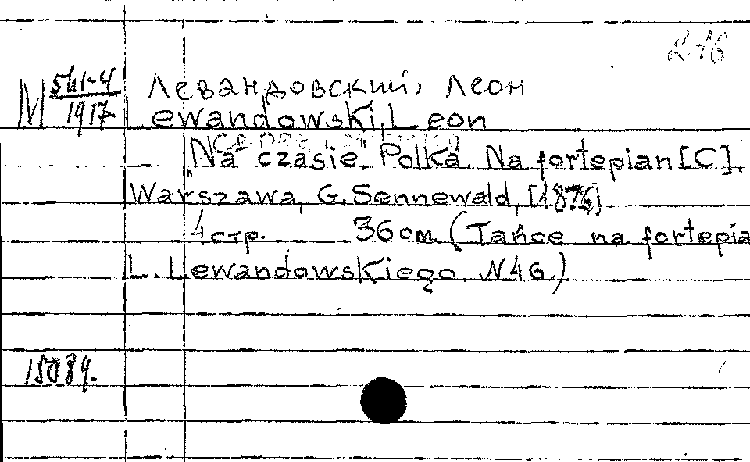 Левандовский, Леон
М 5ш-4
1917
Lewandowski, Leon
"Na czasie" Polka Na fortepian [C].
Warszawa, G. Sennewald, [1876]
4 стр. 36 см. (Tańce na fortepia
L. Lewandowskiego. N46.)
15084.